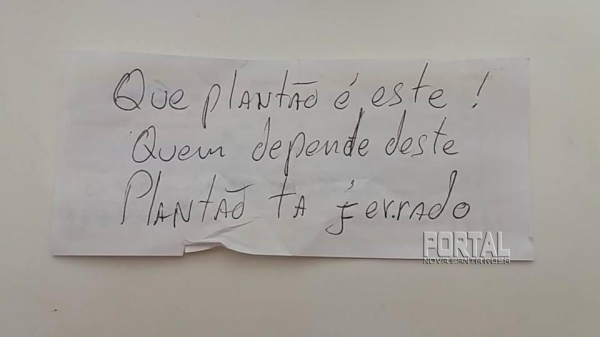 Que plantão é este!
Quem depende deste
Plantão ta ferrado
PORTAL
NOVA SANTA ROSA